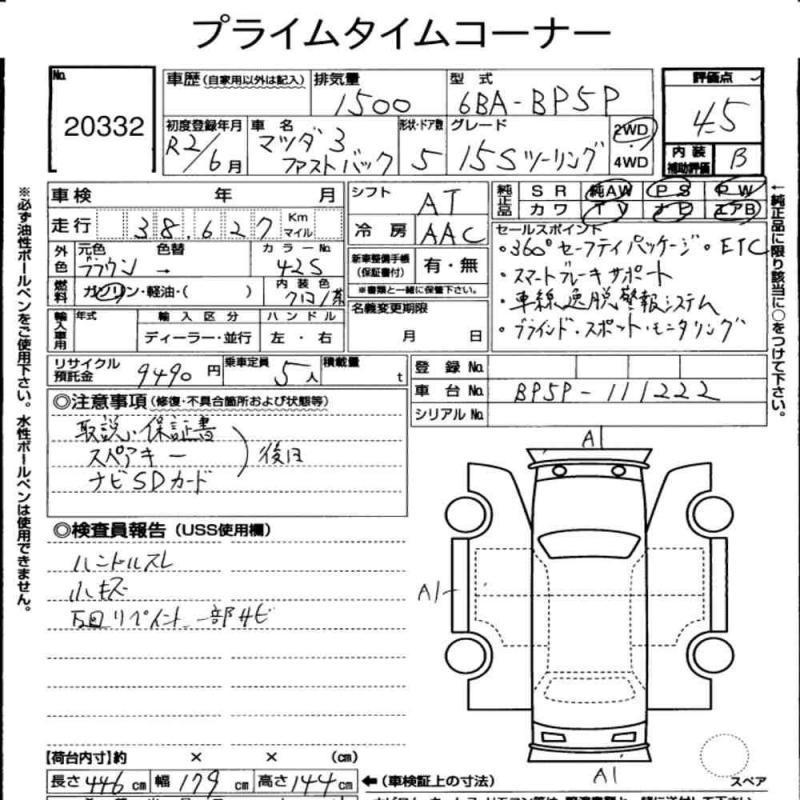 プライムタイムコーナー
No.
20332
車歴(自家用以外は記入)
排気量
1500
型式
6BA-BP5P
評価点
4.5
初度登録年月
R2/6月
車名
マツダ3
ファストバック
形状・ドア数
5
グレード
15Sツーリング
2WD
4WD
内装
補助評価
B
車検 年 月
シフト
AT
純正品
SR 純AW PS PW
カワ TV ナビ エアB
走行 38,627 Km マイル
冷房
AAC
セールスポイント
・360°セーフティパッケージ・ETC
・スマートブレーキサポート
・車線逸脱警報システム
・ブラインド・スポット・モニタリング
外色
元色 色替
ブラウン →
カラーNo.
42S
新車整備手帳
(保証書付)
有・無
※書類と一緒に保管下さい。
燃料
ガソリン・軽油・( )
内装色
クロ/茶
名義変更期限
月 日
輸入車用
年式
輸入区分
ディーラー・並行
ハンドル
左・右
リサイクル
預託金
9490円
乗車定員
5人
積載量
t
登録No.
車台No.
BP5P-111222
シリアルNo.
◎注意事項(修復・不具合箇所および状態等)
取説・保証書
スペアキー
ナビSDカード
後日
◎検査員報告(USS使用欄)
ハンドルスレ
小キズ
下回リペイント 一部サビ
A1
A1
A1
スペア
【荷台内寸】約 × × (cm)
長さ446cm 幅179cm 高さ144cm
←(車検証上の寸法)
※必ず油性ボールペンをご使用下さい。水性ボールペンは使用できません。
←純正品に限り該当に○をつけて下さい。